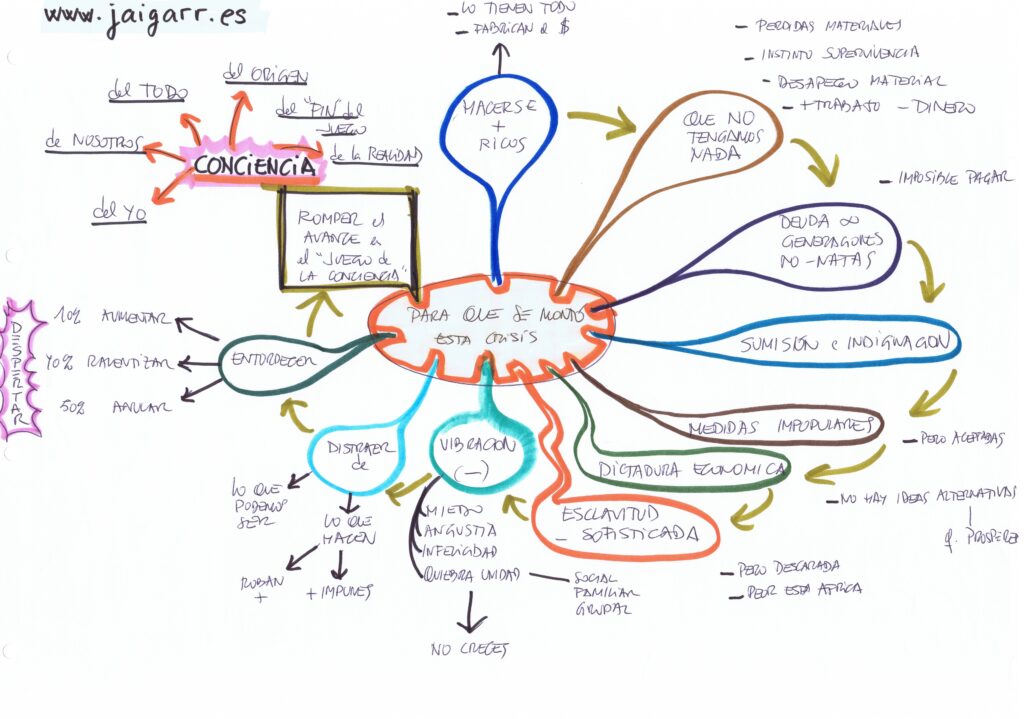 www.jaigarr.es
- LO TIENEN TODO
- FABRICAN EL $
HACERSE
+
RICOS
- PERDIDAS MATERIALES
- INSTINTO SUPERVIVENCIA
- DESAPEGO MATERIAL
- + TRABAJO - DINERO
QUE NO
TENGAMOS
NADA
- IMPOSIBLE PAGAR
DEUDA ∞
GENERACIONES
NO-NATAS
SUMISIÓN e INDIGNACION
MEDIDAS IMPOPULARES
- PERO ACEPTADAS
DICTADURA ECONOMICA
- NO HAY IDEAS ALTERNATIVAS
q. PROSPEREN
ESCLAVITUD
- SOFISTICADA
- PERO DESCARADA
- PEOR ESTA AFRICA
VIBRACION
(-)
MIEDO
ANGUSTIA
INFELICIDAD
QUIEBRA UNIDAD
SOCIAL
FAMILIAR
GRUPAL
NO CRECES
DISTRAER
de
LO QUE
PODEMOS
SER
LO QUE
HACEN
ROBAN
+
+ IMPUNES
ENTORPECER
10% AUMENTAR
40% RALENTIZAR
50% ANULAR
DESPERTAR
ROMPER el
AVANCE en
el "JUEGO de
LA CONCIENCIA"
CONCIENCIA
del ORIGEN
del TODO
del "FIN del
JUEGO
de NOSOTROS
de la REALIDAD
del YO
PARA QUE SE MONTO
ESTA CRISIS